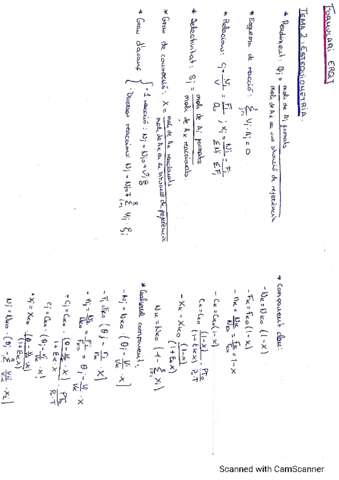 FORMULARI ERQI
TEMA 2. ESTEQUIOMETRIA.
* Rendiment: Φj = mols de Aj formats / mols de Ak en una situació de referència
* Esquema de reacció: Σ νj · Aj = 0
* Relacions: Cj = Nj/V = Fj/Qv ; Xj = Nj/ΣNj = Fj/ΣFj
* Selectivitat: Sj = mols de Aj formats / mols de Ak reaccionats
* Grau de conversió: X = mols de Ak reaccionats / mols de Ak en la situació de referència
* Grau d'avanç
- 1 reacció: Nj = Njo + νj ξ
- Diverses reaccions: Nj = Njo + Σ νij ξi
* Component clau:
- Nk = Nko (1-x)
- Fk = Fko (1-x)
- nk = Nk/Nko = Fk/Fko = 1-x
- Ck = Cko (1-x)
Ck = Cko (1-x)/(1+εkx) · PTo/PoT
- Xk = Xko (1-x)/(1+εkx)
Nk = Nko (1 - Σ xi)
* Qualsevol component:
- Nj = Nko (θj - νj/νk · x)
- Fj = Fko (θj - νj/νk · x)
- nj = Nj/Nko = Fj/Fko = θj - νj/νk · x
Cj = Cko · (θj - νj/νk · x)
Nj = Nko (θj - Σ νij/νik · xi)
Scanned with CamScanner